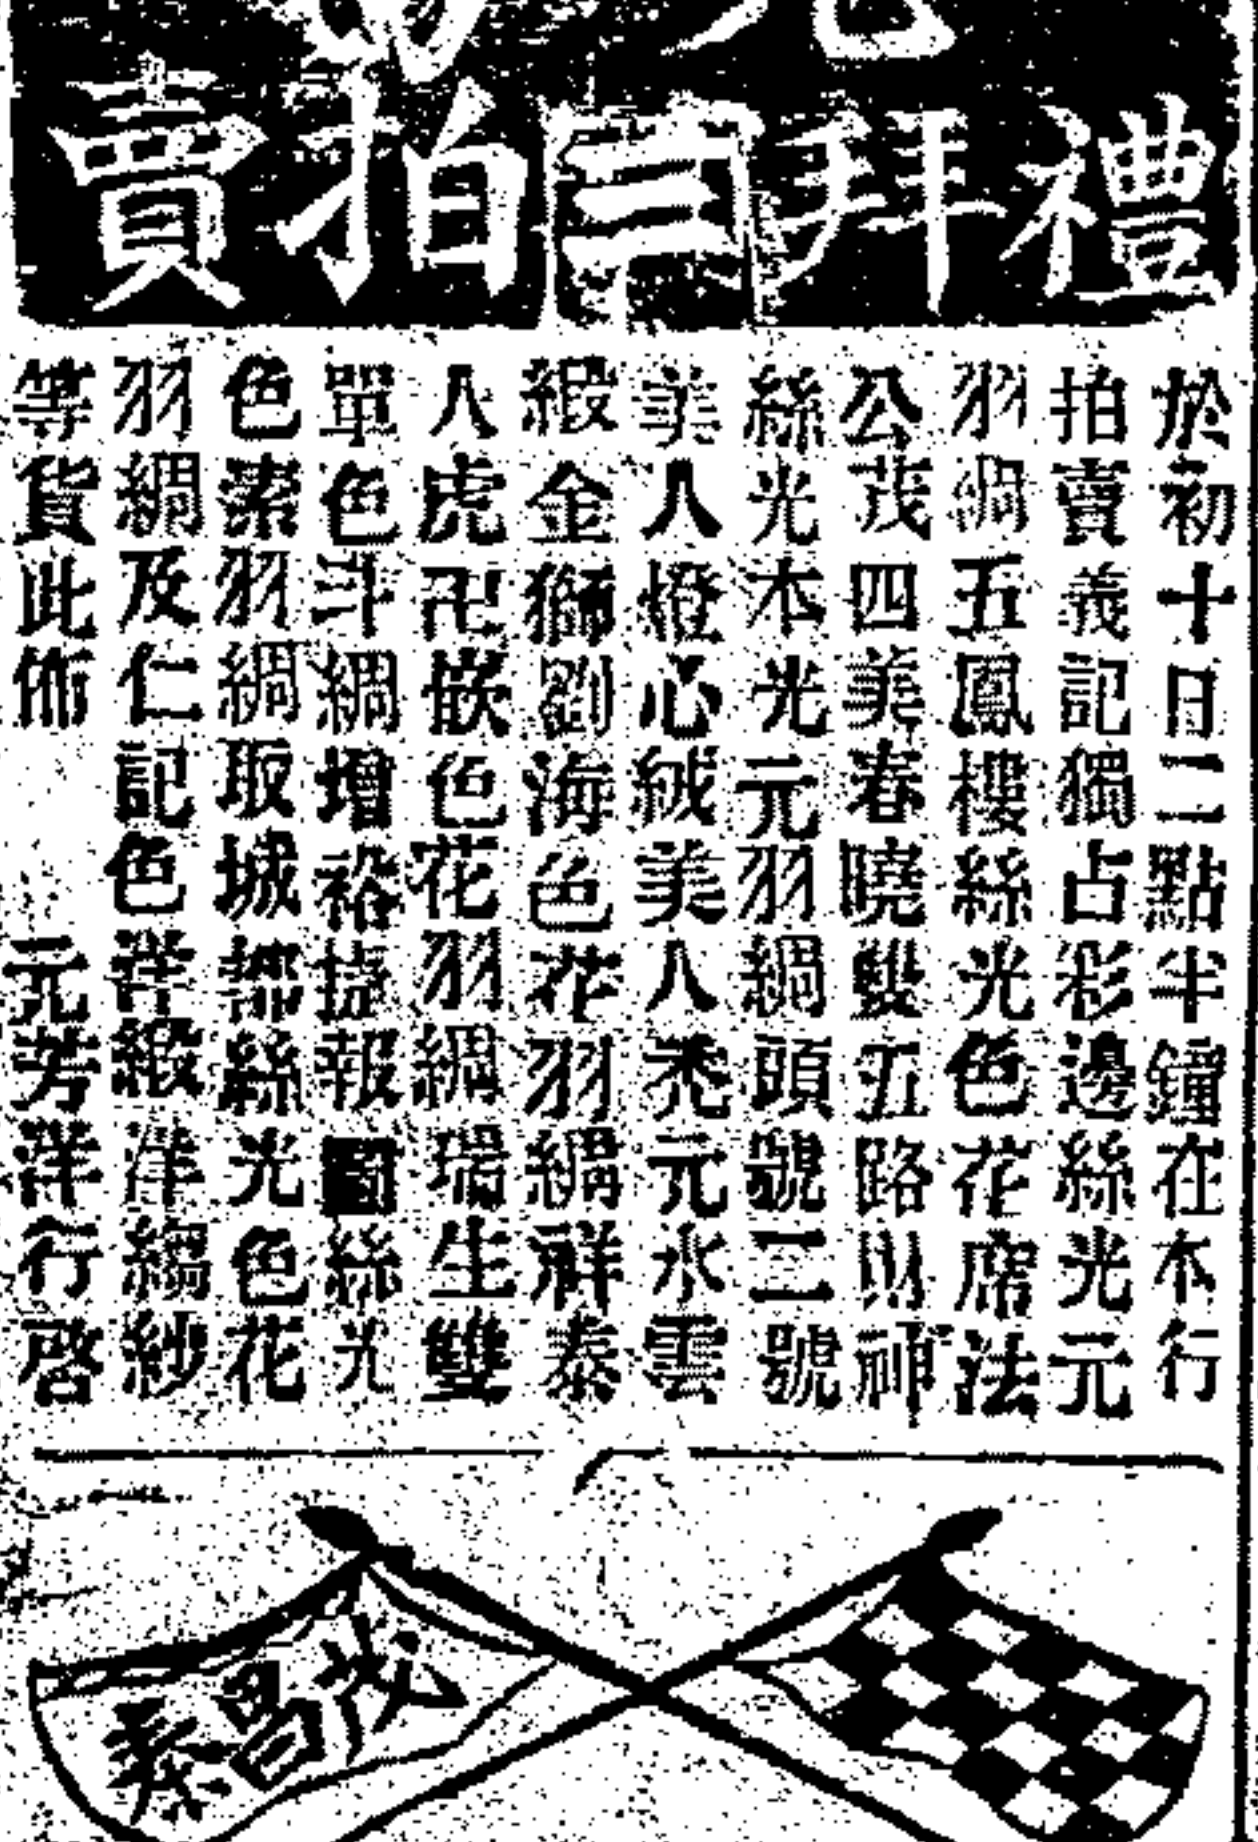 禮拜三拍賣
於初十日二點半鐘在本行
拍賣義記獨占彩邊絲光元
羽綢五鳳樓絲光色花席法
公茂四美春曉雙五路財神
絲光本光元羽綢頭號二號
美人燈心絨美人禿元水雲
緞金獅劉海色花羽綢祥泰
人虎卍嵌色花羽綢瑞生雙
單色斗綢增裕捷報圖絲光
色素羽綢取城都絲光色花
羽綢及仁記色洋緞洋縐紗
等貨此佈 元芳洋行啓
茂昌泰